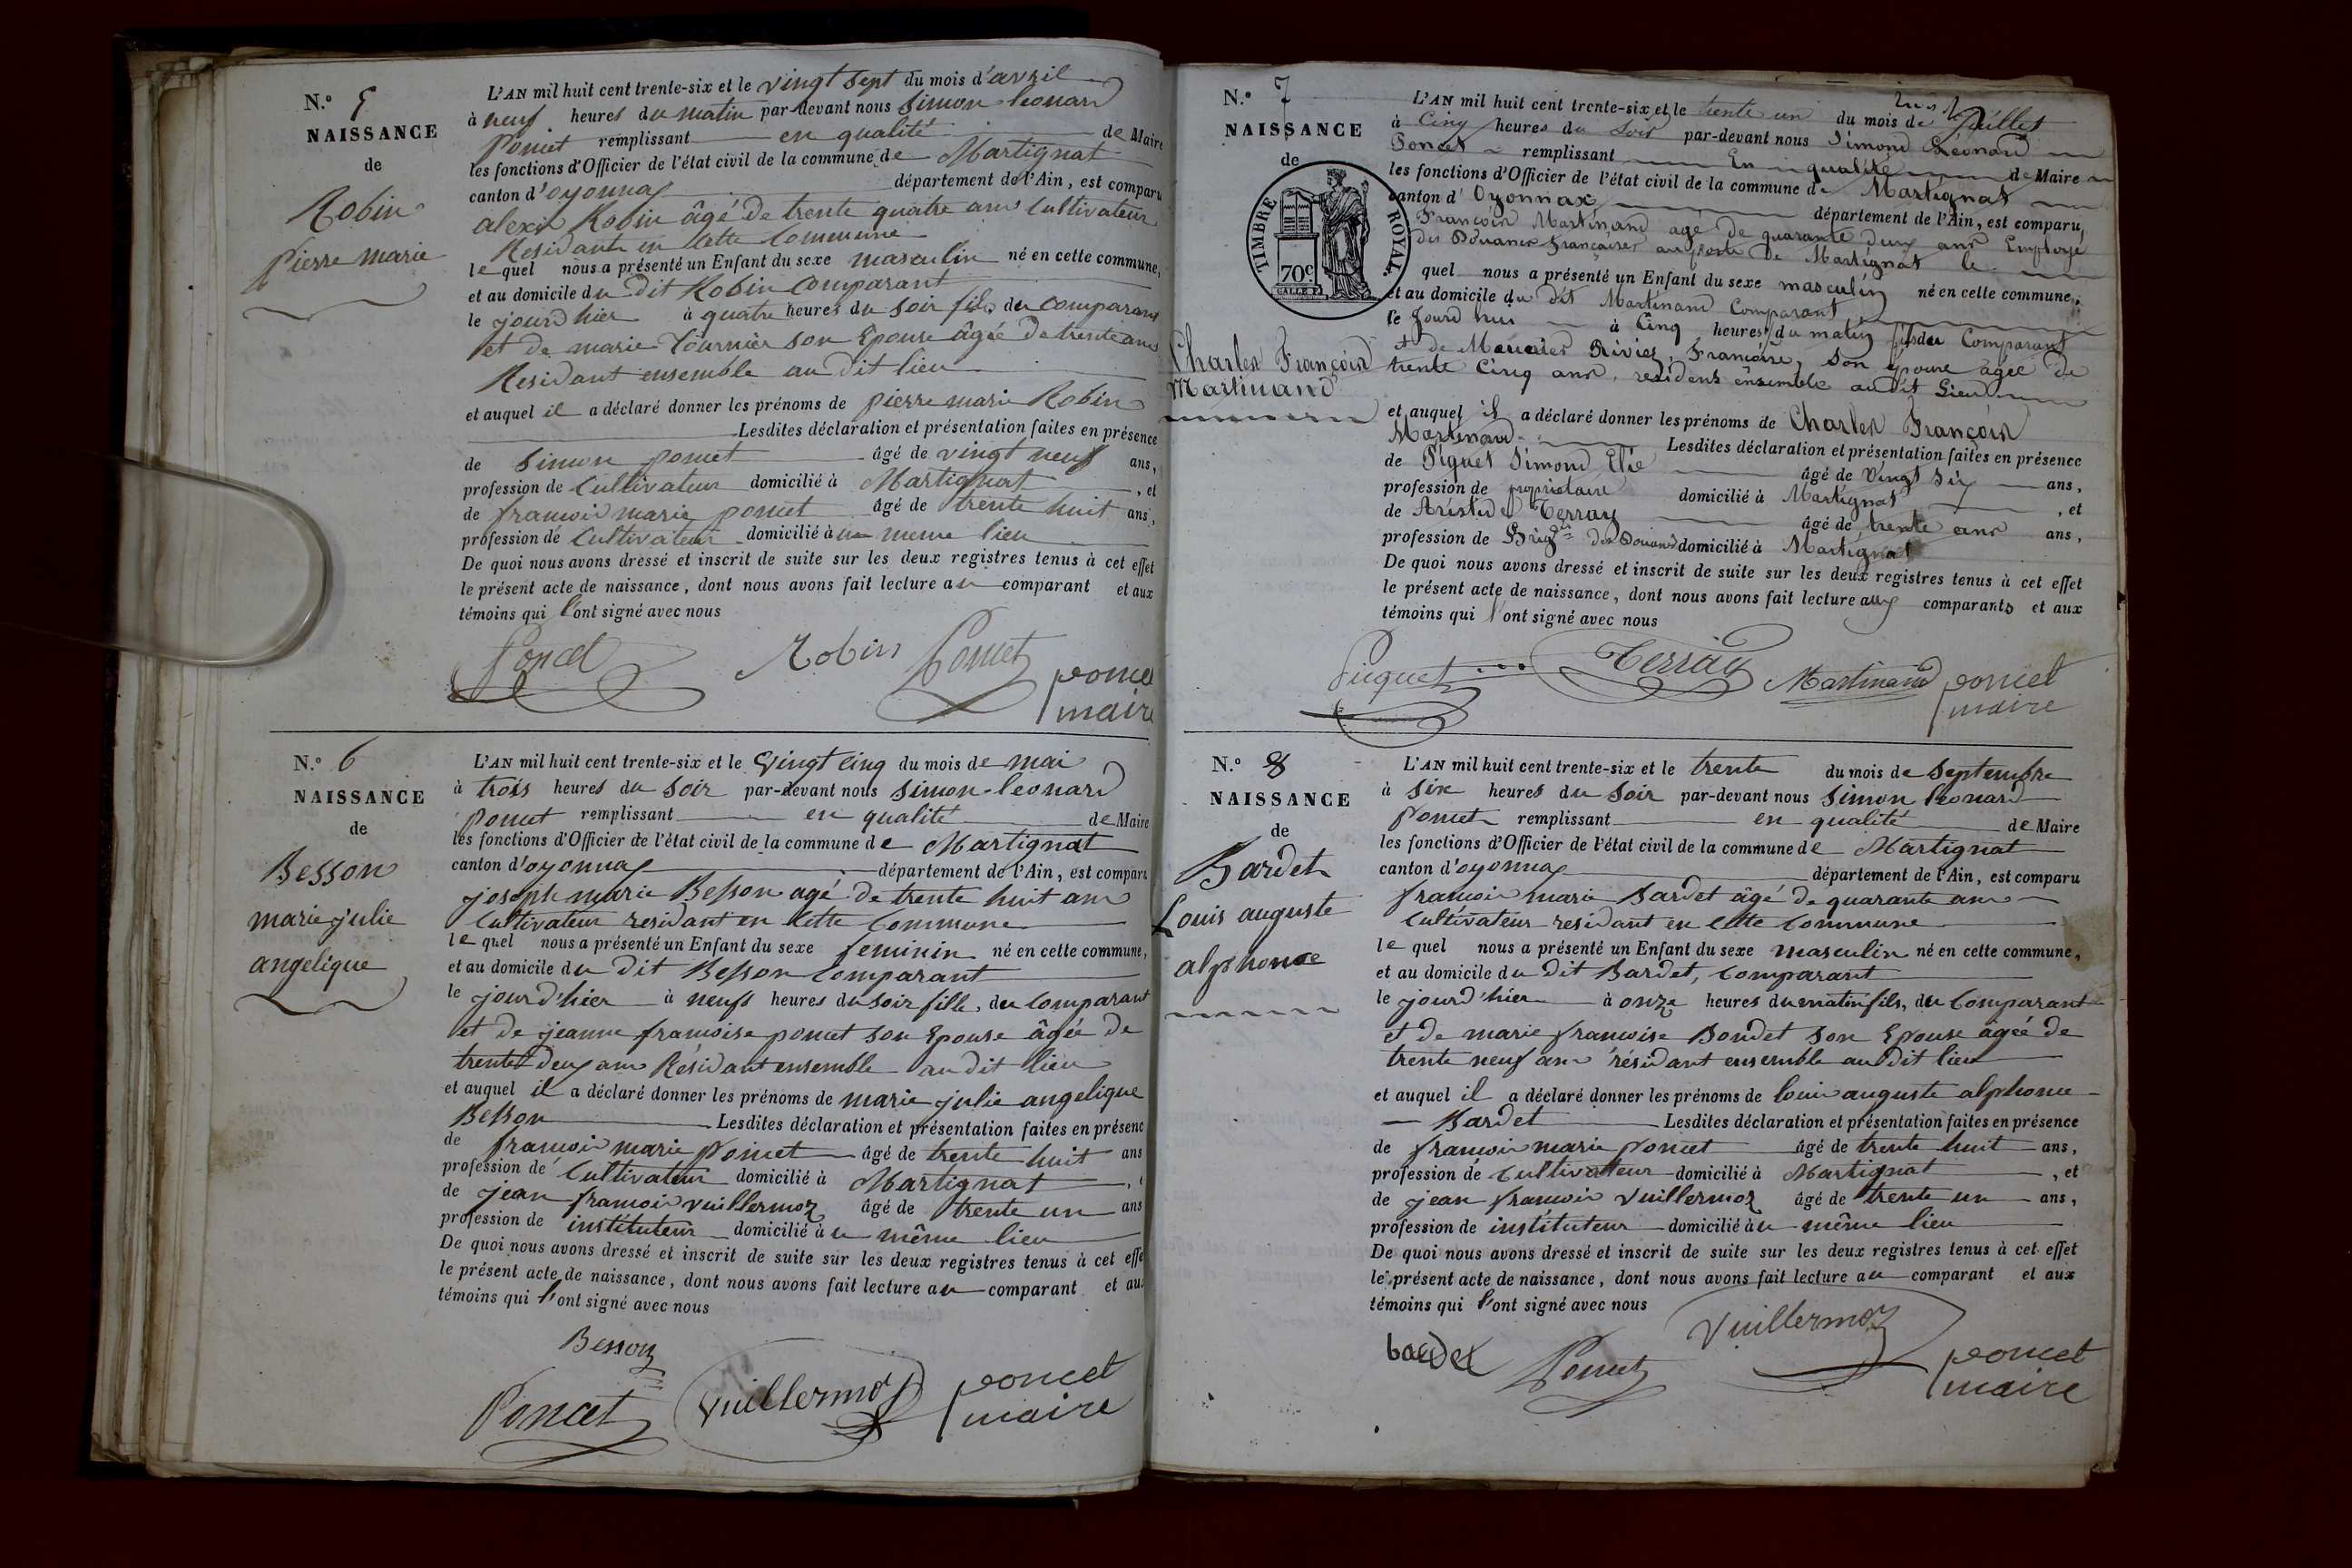 N.º 5
NAISSANCE
de
Robin
pierre marie
L'AN mil huit cent trente-six et le vingt sept du mois d'avril
à neuf heures du matin par-devant nous simon leonard
poncet remplissant en qualité de Maire
les fonctions d'Officier de l'état civil de la commune de Martignat
canton d'oyonnax département de l'Ain, est comparu
alexis Robin âgé de trente quatre ans cultivateur
Residante en cette commune
le quel nous a présenté un Enfant du sexe masculin né en cette commune,
et au domicile du dit Robin comparant
le jourd hier à quatre heures du soir fils, du comparant
et de marie tournier son Epouse âgée de trente ans
Residant ensemble au dit lieu
et auquel il a déclaré donner les prénoms de pierre marie Robin
Lesdites déclaration et présentation faites en présence
de simon poncet âgé de vingt neuf ans,
profession de cultivateur domicilié à Martignat, et
de francois marie poncet âgé de trente huit ans,
profession de cultivateur domicilié à u meme lieu
De quoi nous avons dressé et inscrit de suite sur les deux registres tenus à cet effet
le présent acte de naissance, dont nous avons fait lecture au comparant et aux
témoins qui l'ont signé avec nous
Poncet Robin Poncet poncet
maire
N.º 6
NAISSANCE
de
Besson
marie julie
angelique
L'AN mil huit cent trente-six et le vingt cinq du mois de mai
à trois heures du soir par-devant nous simon leonard
poncet remplissant en qualité de Maire
les fonctions d'Officier de l'état civil de la commune de Martignat
canton d'oyonnax département de l'Ain, est comparu
joseph marie Besson agé de trente huit ans
cultivateur residant en cette commune
le quel nous a présenté un Enfant du sexe feminin né en cette commune,
et au domicile du dit Besson comparant
le jourd'hier à neufs heures du soir fille, du comparant
et de jeanne francoise poncet son Epouse âgée de
trente deux ans Résidant ensemble au dit lieu
et auquel il a déclaré donner les prénoms de marie julie angelique
Besson Lesdites déclaration et présentation faites en présenc
de francois marie poncet âgé de trente huit ans
profession de cultivateur domicilié à Martignat,
de jean francois vuillermoz âgé de trente un ans
profession de instituteur domicilié à u même lieu
De quoi nous avons dressé et inscrit de suite sur les deux registres tenus à cet effe
le présent acte de naissance, dont nous avons fait lecture au comparant et au
témoins qui l'ont signé avec nous
Besson
Poncet vuillermoz poncet
maire
N.º 7
NAISSANCE
de
TIMBRE ROYAL.
70c
Charles François
Martinand
L'AN mil huit cent trente-six et le trente un du mois de Juillet
à Cinq heures du Soir par-devant nous Simond Leonard
Poncet remplissant En qualité de Maire
les fonctions d'Officier de l'état civil de la commune de Martignat
canton d'Oyonnax département de l'Ain, est comparu,
François Martinand agé de quarante deux ans Employé
des Douanes Françaises au poste de Martignat le
quel nous a présenté un Enfant du sexe masculin né en cette commune,
et au domicile du dit Martinand Comparant
le Jourd hui à Cinq heures du matin fils du Comparant
et de Rivier, Francoise, Son épouse âgée de
trente Cinq ans, residens ensemble au dit Lieu
et auquel il a déclaré donner les prénoms de Charles François
Martinand Lesdites déclaration et présentation faites en présence
de Piquet Simond Elie âgé de Vingt Six ans,
profession de propriétaire domicilié à Martignat, et
de Aristide Terray âgé de trente ans ans,
profession de Brigr des Douanes domicilié à Martignat
De quoi nous avons dressé et inscrit de suite sur les deux registres tenus à cet effet
le présent acte de naissance, dont nous avons fait lecture aux comparants et aux
témoins qui l'ont signé avec nous
Piquet Terray Martinand poncet
maire
N.º 8
NAISSANCE
de
Bardet
Louis auguste
alphonse
L'AN mil huit cent trente-six et le trente du mois de septembre
à six heures du soir par-devant nous simon leonard
Poncet remplissant en qualité de Maire
les fonctions d'Officier de l'état civil de la commune de Martignat
canton d'oyonnax département de l'Ain, est comparu
francois marie Bardet âgé de quarante ans
cultivateur residant en cette commune
le quel nous a présenté un Enfant du sexe masculin né en cette commune,
et au domicile du dit Bardet, comparant
le jourd'hier à onze heures du matin fils, du comparant
et de marie francoise Bondet son Epouse âgée de
trente neuf ans résidant ensemble au dit lieu
et auquel il a déclaré donner les prénoms de louis auguste alphonse
Bardet Lesdites déclaration et présentation faites en présence
de francois marie poncet âgé de trente huit ans,
profession de cultivateur domicilié à Martignat, et
de jean francois vuillermoz âgé de trente un ans,
profession de instituteur domicilié à u même lieu
De quoi nous avons dressé et inscrit de suite sur les deux registres tenus à cet effet
le présent acte de naissance, dont nous avons fait lecture au comparant et aux
témoins qui l'ont signé avec nous
bardet Poncet Vuillermoz poncet
maire